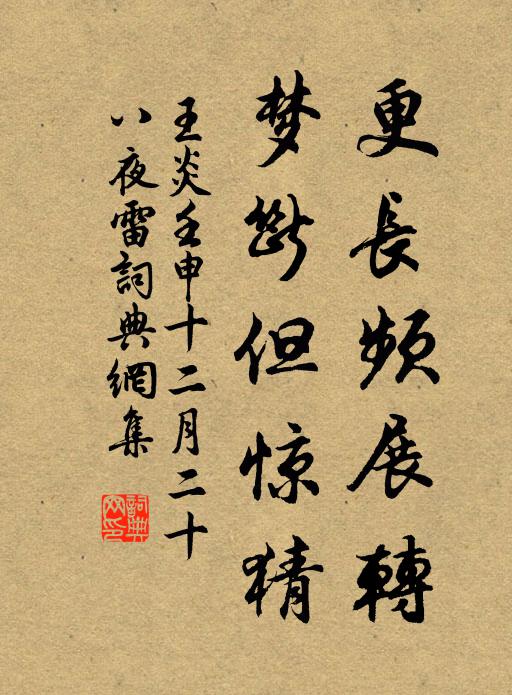 更長頻展轉
梦斷但惊猜
王炎壬申十二月二十
八夜雷詞典網集
詞典网印